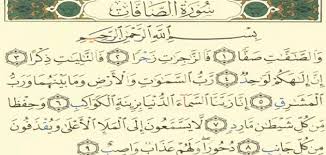 سُورَةُ الصَّافَّاتِ
بِسْمِ اللَّهِ الرَّحْمَٰنِ الرَّحِيمِ
وَالصَّٰٓفَّٰتِ صَفًّا ١ فَالزَّٰجِرَٰتِ زَجْرًا ٢ فَالتَّٰلِيَٰتِ ذِكْرًا ٣
إِنَّ إِلَٰهَكُمْ لَوَٰحِدٌ ٤ رَّبُّ السَّمَٰوَٰتِ وَالْأَرْضِ وَمَا بَيْنَهُمَا وَرَبُّ
الْمَشَٰرِقِ ٥ إِنَّا زَيَّنَّا السَّمَآءَ الدُّنْيَا بِزِينَةٍ الْكَوَاكِبِ ٦ وَحِفْظًا
مِّن كُلِّ شَيْطَٰنٍ مَّارِدٍ ٧ لَّا يَسَّمَّعُونَ إِلَى الْمَلَإِ الْأَعْلَىٰ وَيُقْذَفُونَ
مِن كُلِّ جَانِبٍ ٨ دُحُورًا وَلَهُمْ عَذَابٌ وَاصِبٌ ٩